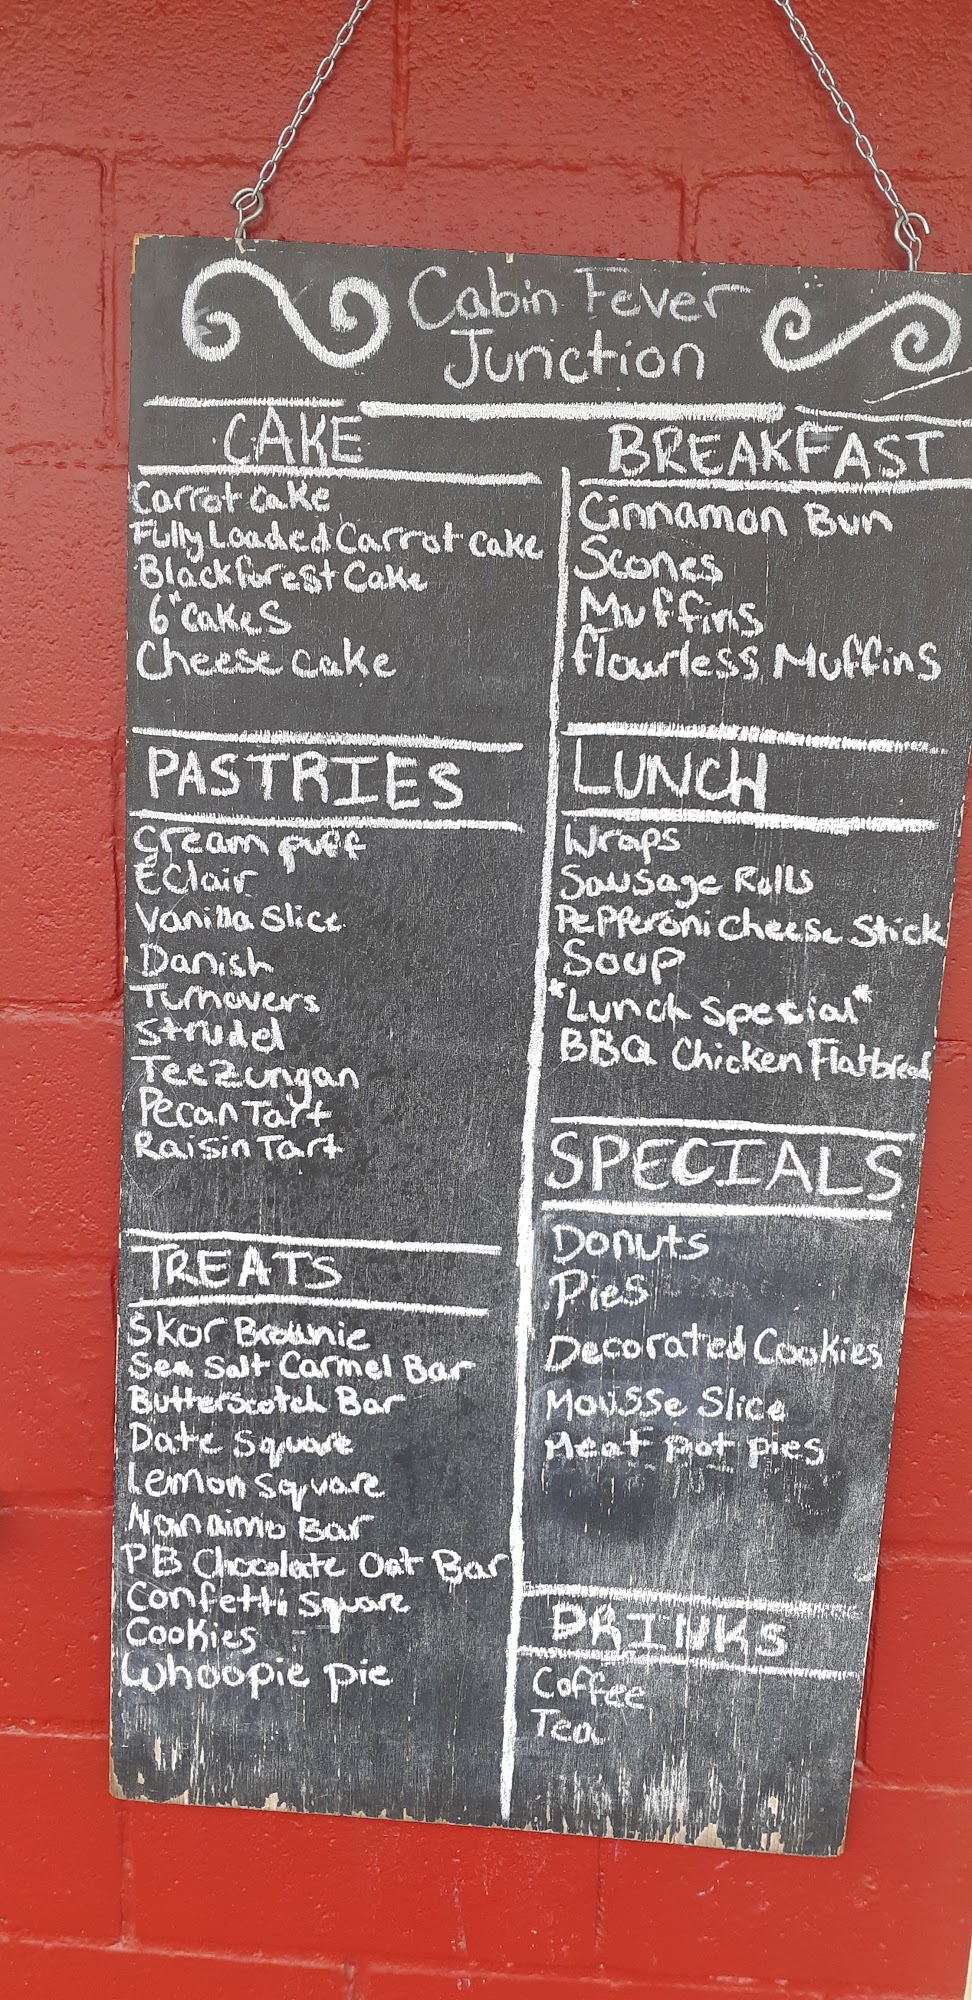 Cabin Fever
Junction
CAKE
Carrot cake
Fully Loaded Carrot cake
Black forest Cake
6" cakes
Cheese cake
PASTRIES
Cream puff
Eclair
Vanilla Slice
Danish
Turnovers
Strudel
Teezungan
Pecan Tart
Raisin Tart
TREATS
Skor Brownie
Sea Salt Carmel Bar
Butterscotch Bar
Date Square
Lemon Square
Nanaimo Bar
PB Chocolate Oat Bar
Confetti Square
Cookies
Whoopie pie
BREAKFAST
Cinnamon Bun
Scones
Muffins
flourless Muffins
LUNCH
Wraps
Sausage Rolls
Pepperoni cheese Stick
Soup
*Lunch Special*
BBQ Chicken Flatbread
SPECIALS
Donuts
Pies
Decorated Cookies
Mousse Slice
Meat pot pies
DRINKS
Coffee
Tea